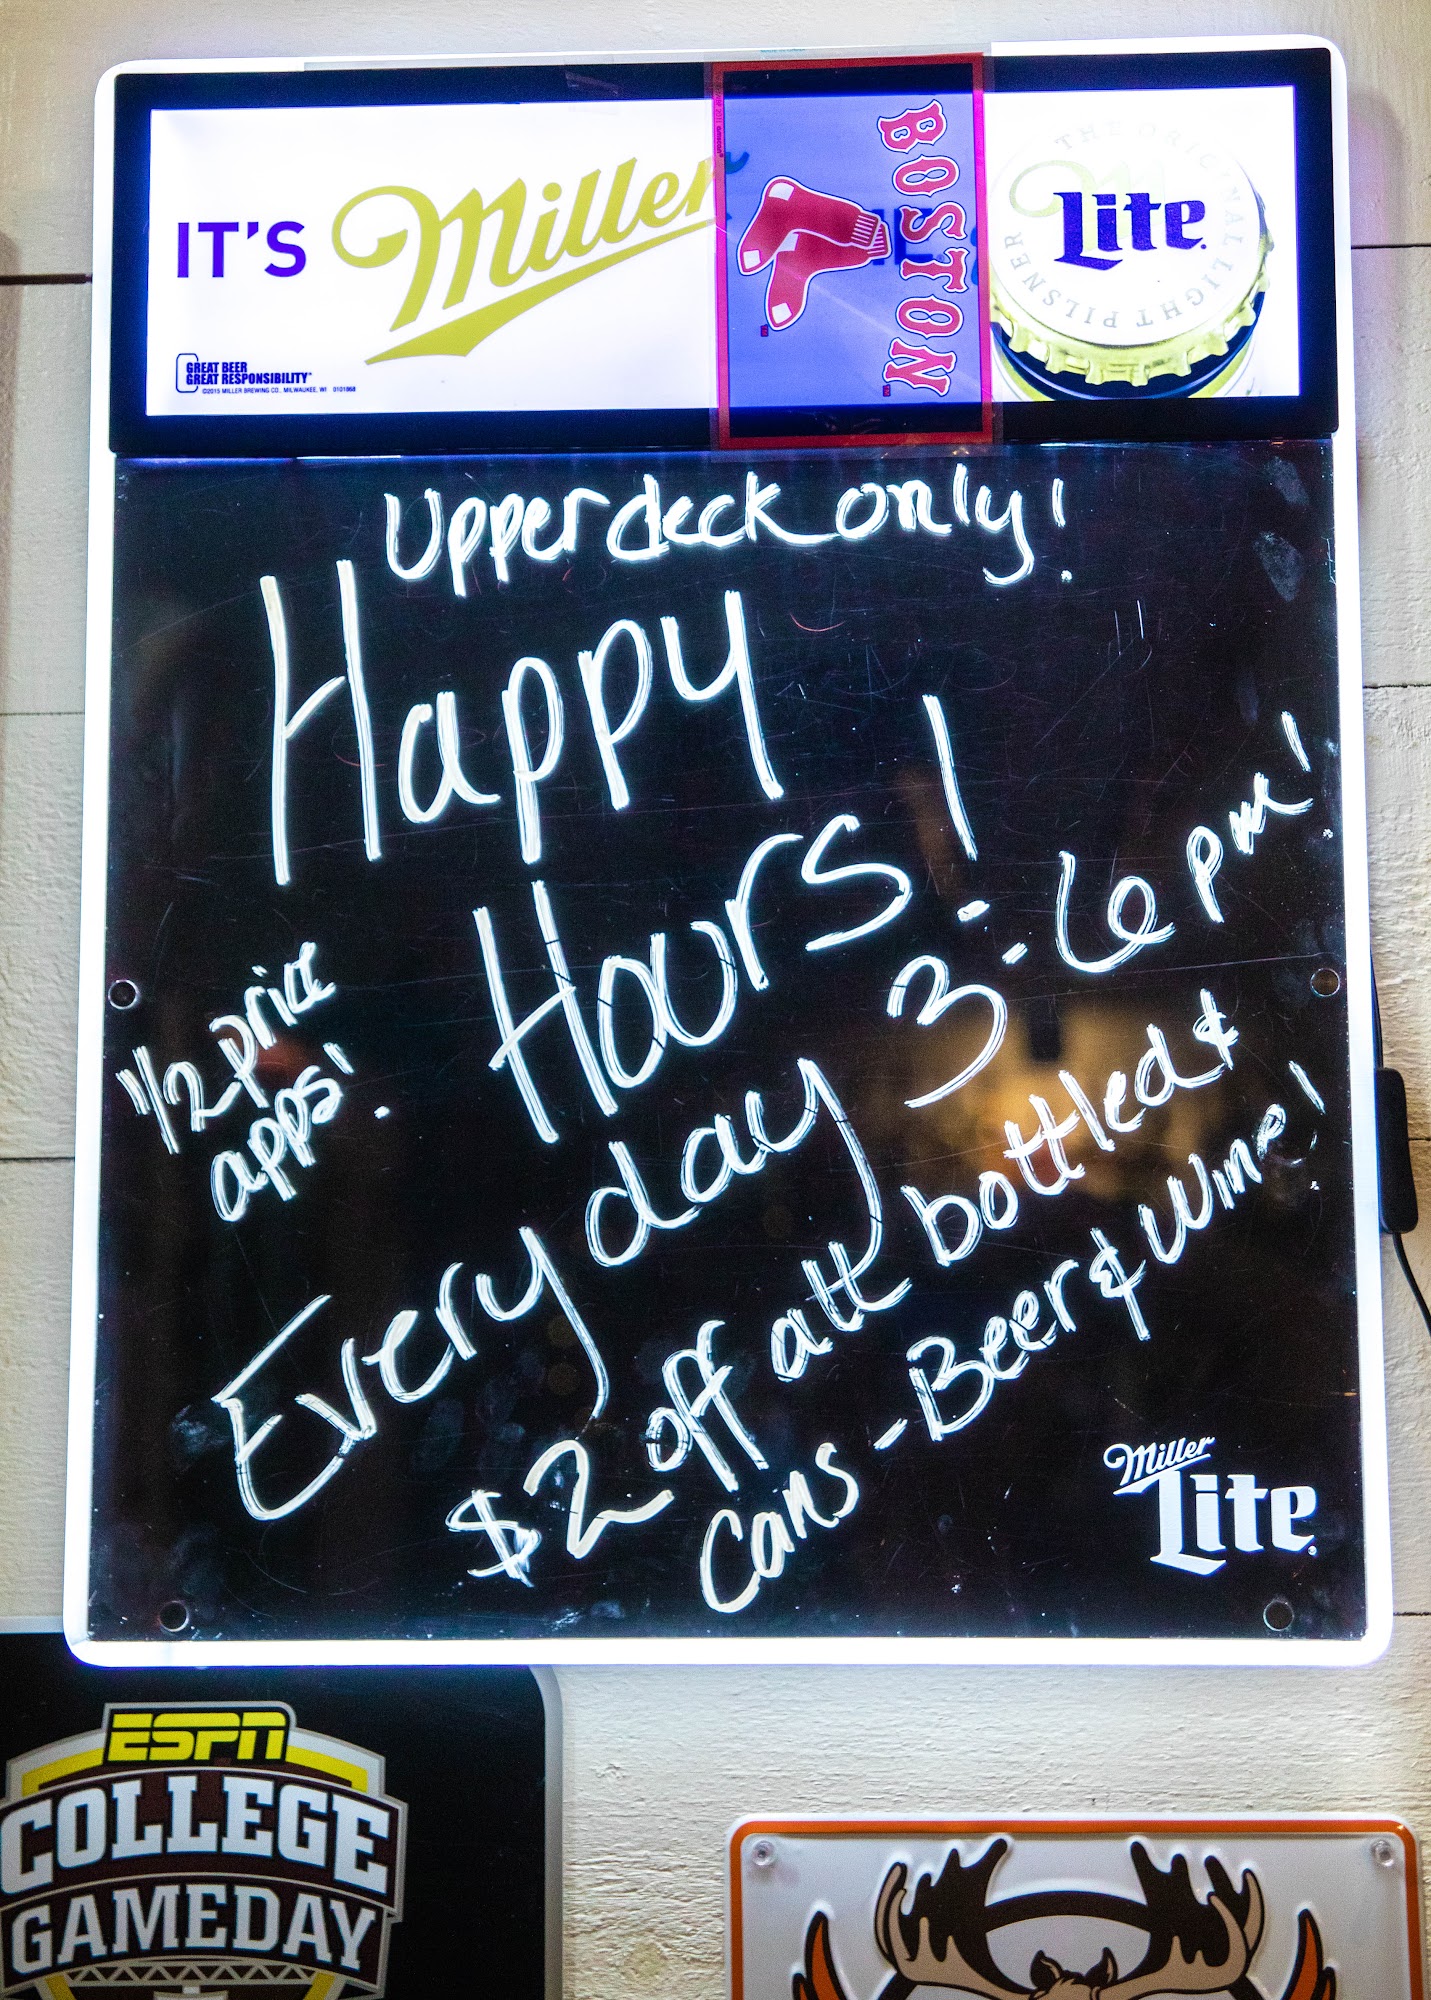 IT'S Miller
BOSTON
THE ORIGINAL LIGHT PILSNER
Lite
GREAT BEER
GREAT RESPONSIBILITY
©2015 MILLER BREWING CO., MILWAUKEE, WI 0101868
Upper deck only!
Happy
Hours!
1/2 price
apps!
Every day 3-6pm!
$2 off all bottled &
cans - Beer & Wine!
Miller
Lite
ESPN
COLLEGE
GAMEDAY